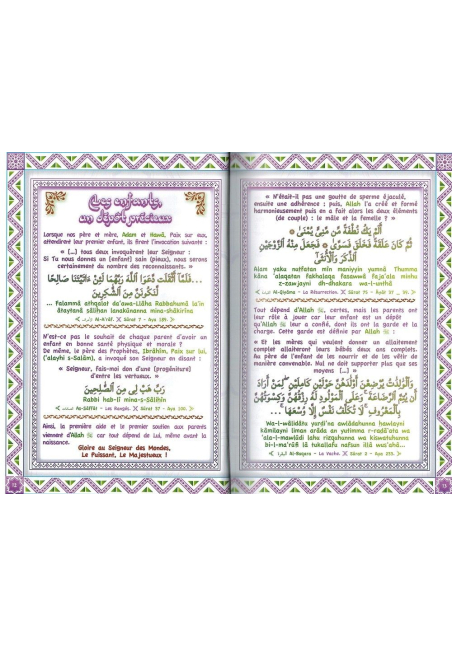 Les enfants,
un dépôt précieux
Lorsque nos père et mère, Adam et Hawâ, Paix sur eux,
attendirent leur premier enfant, ils firent l'invocation suivante :
« [...] tous deux invoquèrent leur Seigneur :
Si Tu nous donnes un (enfant) sain (pieux), nous serons
certainement du nombre des reconnaissants. »
...فَلَمَّآ أَثْقَلَت دَّعَوَا ٱللَّهَ رَبَّهُمَا لَئِنْ ءَاتَيْتَنَا صَٰلِحًا
لَّنَكُونَنَّ مِنَ ٱلشَّٰكِرِينَ
... falammâ athqalat da'awa-Llâha Rabbahumâ la'in
âtaytanâ sâlihan lanakûnanna mina-shâkirîna
Al-A'râf. Sûrat 7 - Aya 189.
N'est-ce pas le souhait de chaque parent d'avoir un
enfant en bonne santé physique et morale ?
De même, le père des Prophètes, Ibrâhîm, Paix sur lui,
('alayhi s-Salâm), a invoqué son Seigneur en disant :
« Seigneur, fais-moi don d'une (progéniture)
d'entre les vertueux. »
رَبِّ هَبْ لِى مِنَ ٱلصَّٰلِحِينَ
Rabbi hab-lî mina s-Sâlihîn
As-Sâffât - Les Rangés. Sûrat 37 - Aya 100.
Ainsi, la première aide et le premier soutien aux parents
viennent d'Allah ﷻ car tout dépend de Lui, même avant la
naissance.
Gloire au Seigneur des Mondes,
Le Puissant, Le Majestueux !
12
« N'était-il pas une goutte de sperme éjaculé,
ensuite une adhérence ; puis, Allah l'a créé et formé
harmonieusement puis en a fait alors les deux éléments
(de couple) : le mâle et la femelle ? »
أَلَمْ يَكُ نُطْفَةً مِّن مَّنِىٍّ يُمْنَىٰ
ثُمَّ كَانَ عَلَقَةً فَخَلَقَ فَسَوَّىٰ فَجَعَلَ مِنْهُ ٱلزَّوْجَيْنِ
ٱلذَّكَرَ وَٱلْأُنثَىٰٓ
Alam yaku nutfatan min maniyyin yumnâ Thumma
kâna 'alaqatan fakhalaqa fasawwâ faja'ala minhu
z-zawjayni dh-dhakara wa-l-unthâ
Al-Qiyâma - La Résurrection. Sûrat 75 - Ayât 37
Tout dépend d'Allah ﷻ, certes, mais les parents ont
leur rôle à jouer car leur enfant est un dépôt
qu'Allah ﷻ leur a confié, dont ils ont la garde et la
charge. Cette garde est définie par Allah ﷻ :
« Et les mères qui veulent donner un allaitement
complet allaiteront leurs bébés deux ans complets.
Au père de l'enfant de les nourrir et de les vêtir de
manière convenable. Nul ne doit supporter plus que ses
moyens [...] »
وَٱلْوَٰلِدَٰتُ يُرْضِعْنَ أَوْلَٰدَهُنَّ حَوْلَيْنِ كَامِلَيْنِ لِمَنْ أَرَادَ
أَن يُتِمَّ ٱلرَّضَاعَةَ وَعَلَى ٱلْمَوْلُودِ لَهُۥ رِزْقُهُنَّ وَكِسْوَتُهُنَّ
بِٱلْمَعْرُوفِ لَا تُكَلَّفُ نَفْسٌ إِلَّا وُسْعَهَا...
Wa-l-wâlidâtu yurdi'na awlâdahunna hawlayni
kâmilayni liman arâda an yutimma r-radâ'ata wa
'ala-l-mawlûdi lahu rizquhunna wa kiswatuhunna
bi-l-ma'rûfi lâ tukallafu nafsun illâ wus'ahâ...
Al-Baqara - La Vache. Sûrat 2 - Aya 233.
13